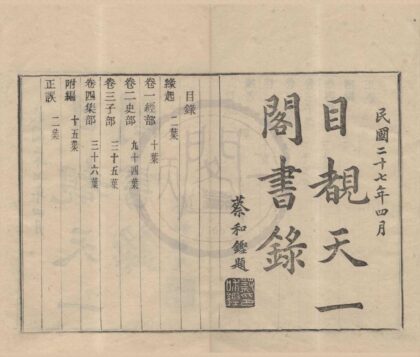 民國二十七年四月
目覩天一
閣書錄
蔡和鏗題
目錄
緣起 二葉
卷一經部 十葉
卷二史部 九十四葉
卷三子部 三十五葉
卷四集部 三十六葉
附編 十五葉
正誤 二葉